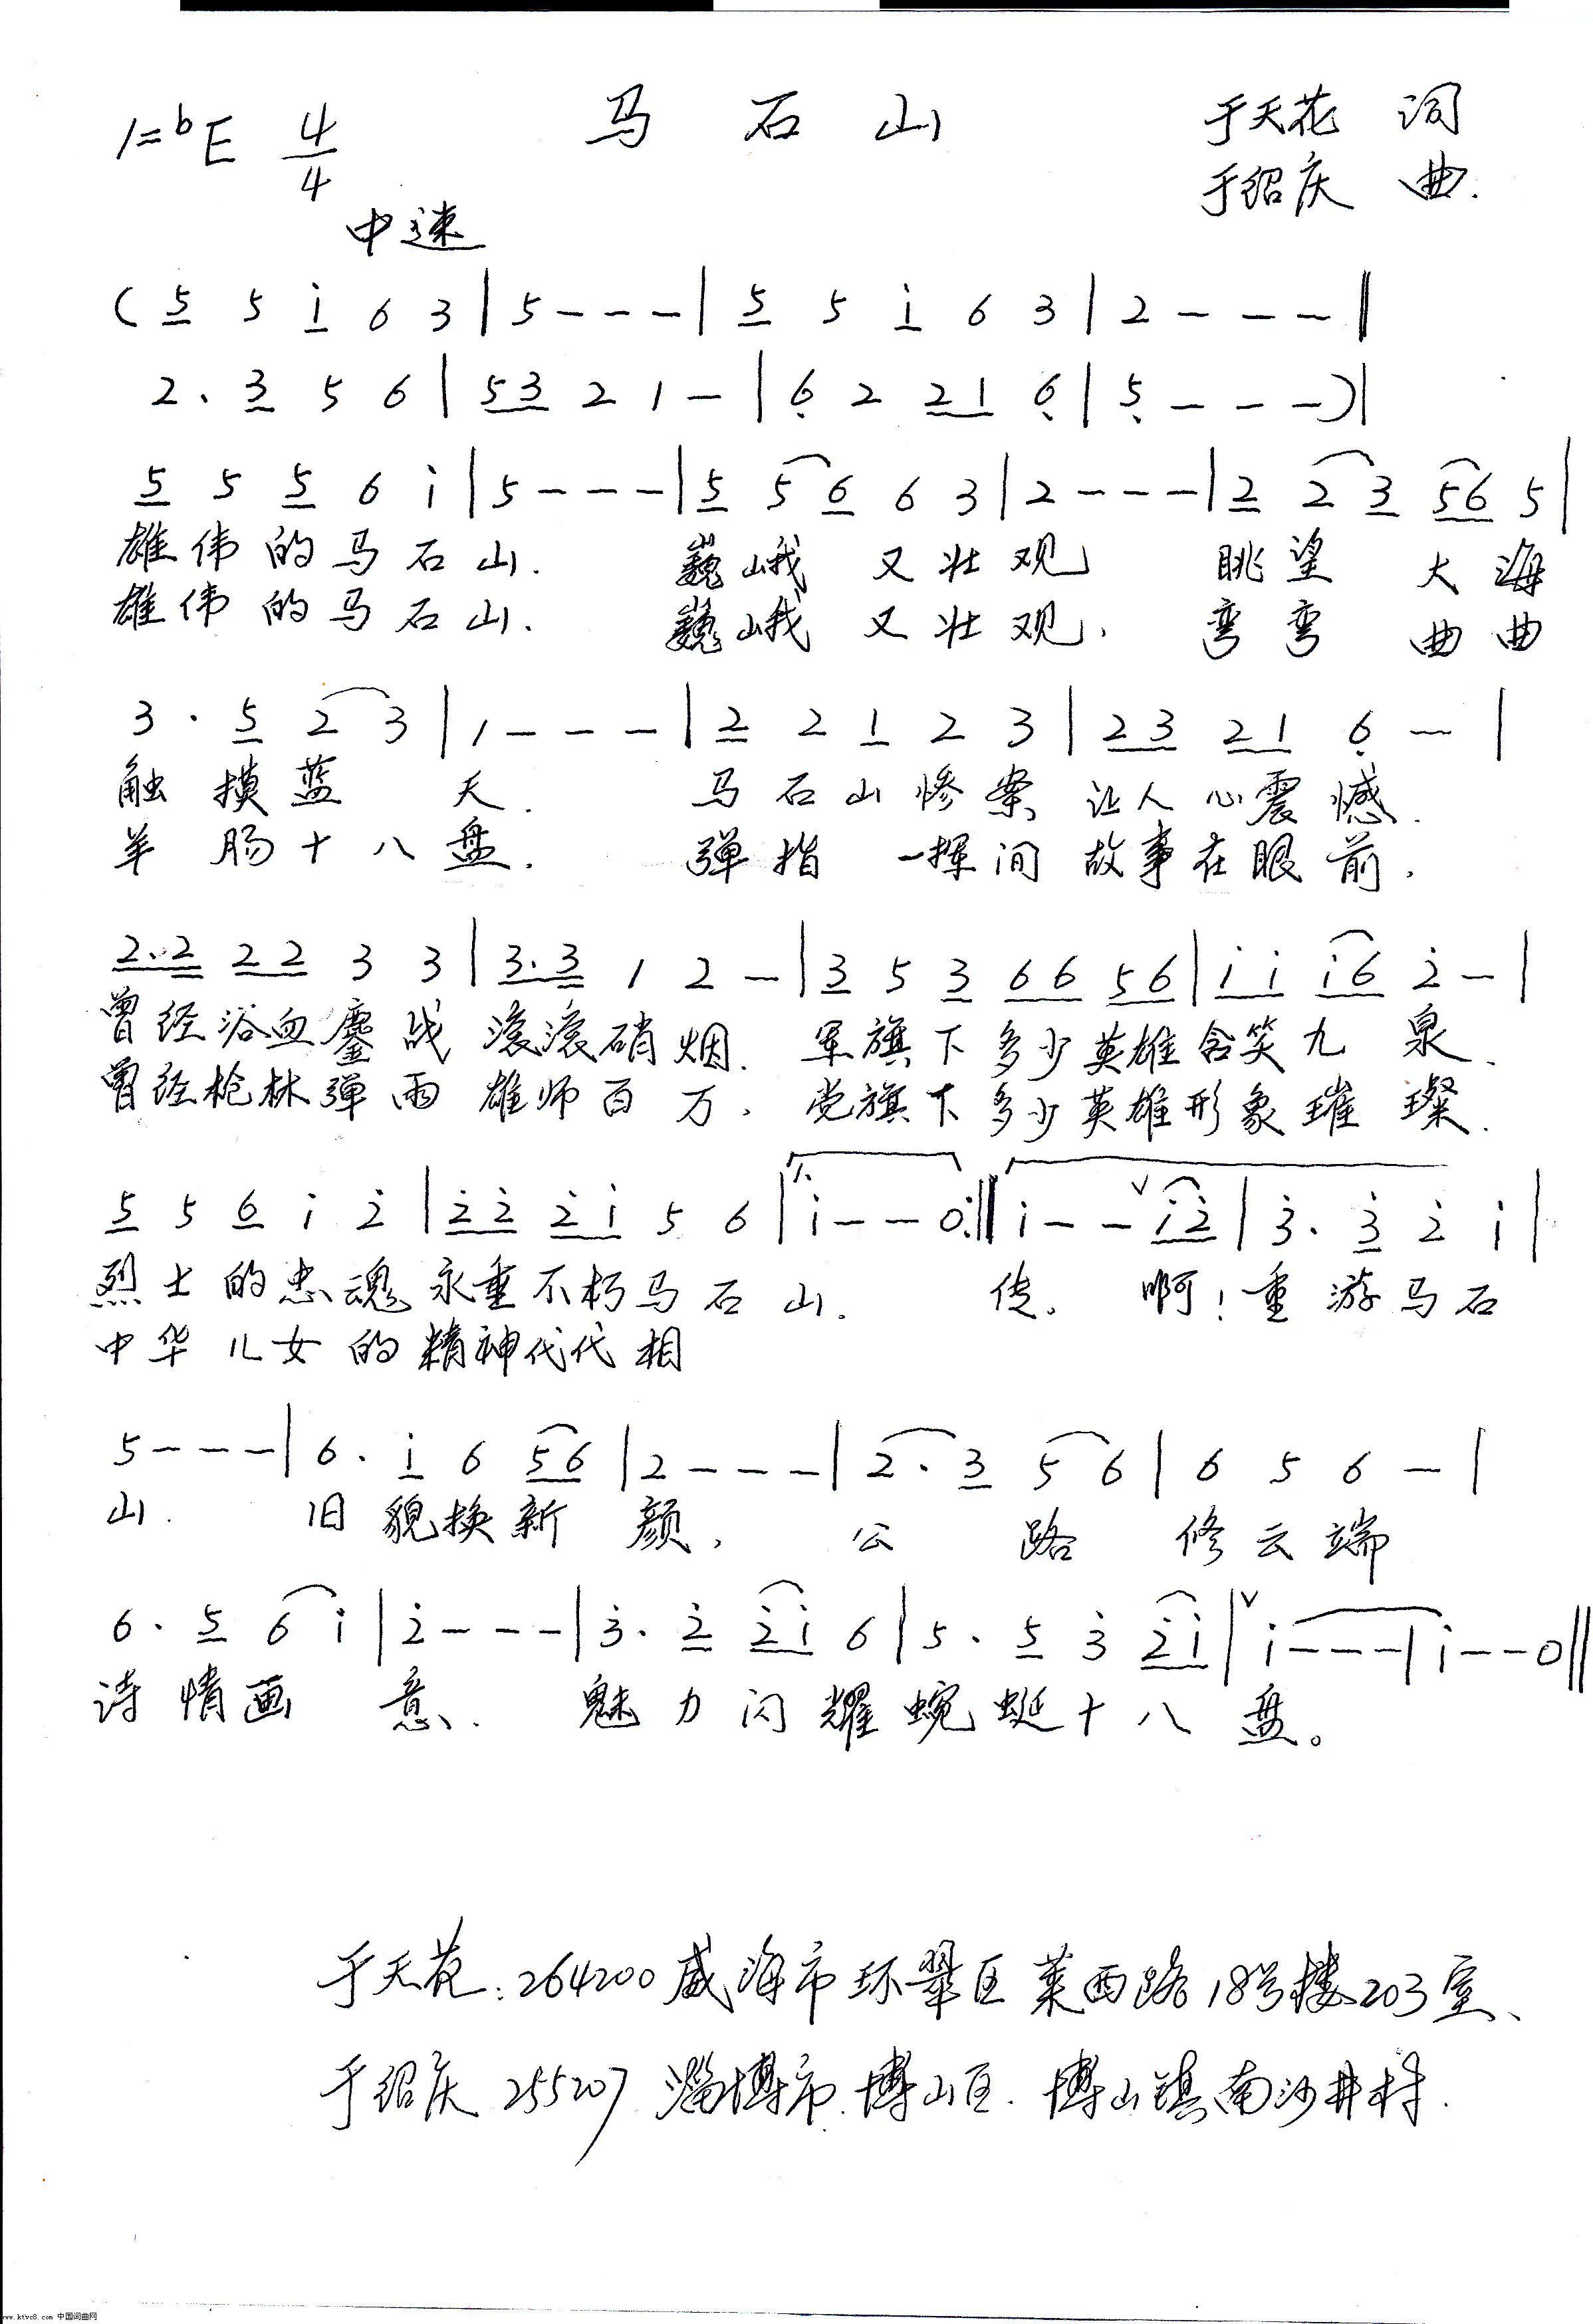 马石山
于天花 词
1=bE 4/4
于绍庆 曲.
中速
( 5 5 i 6 3 | 5 - - - | 5 5 i 6 3 | 2 - - - ‖
2. 3 5 6 | 53 2 1 - | 6 2 21 6 | 5 - - - ) |
5 5 5 6 i | 5 - - - | 5 5 6 6 3 | 2 - - - | 2 2 3 56 5 |
雄伟的马石山. 巍峨又壮观 眺望大海
雄伟的马石山. 巍峨又壮观. 弯弯曲曲
3. 5 2 3 | 1 - - - | 2 2 1 2 3 | 23 21 6 - |
触摸蓝天. 马石山惨案让人心震憾.
羊肠十八盘. 弹指一挥间故事在眼前.
2.2 22 3 3 | 3.3 1 2 - | 3 5 3 66 56 | i i i6 2 - |
曾经浴血鏖战滚滚硝烟. 军旗下多少英雄含笑九泉.
曾经枪林弹雨雄师百万. 党旗下多少英雄形象璀璨.
5 5 6 i 2 | 22 2i 5 6 | 1. i - - 0 :‖ i - - v i2 | 3. 3 2 i |
烈士的忠魂永垂不朽马石山. 传. 啊!重游马石
中华儿女的精神代代相
5 - - - | 6. i 6 56 | 2 - - - | 2. 3 5 6 | 6 5 6 - |
山. 旧貌换新颜. 公路修云端
6. 5 6 i | 2 - - - | 3. 2 2i 6 | 5. 5 3 2i | v i - - - | i - - 0 ‖
诗情画意. 魅力闪耀蜿蜒十八盘。
于天花:264200威海市环翠区莱西路18号楼203室、
于绍庆 255207 淄博市.博山区.博山镇南沙井村.
www.ktvc8.com 中国词曲网